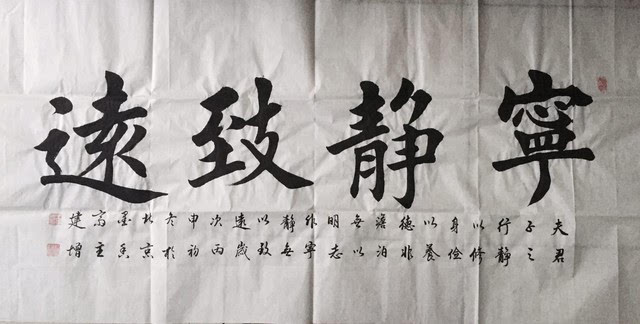 寧静致遠
夫君
子之
行静
以修
身儉
以養
德非
澹泊
無以
明志
非寧
靜無
以致
遠歲
次丙
申初
冬於
北京
墨香
齋主
建增